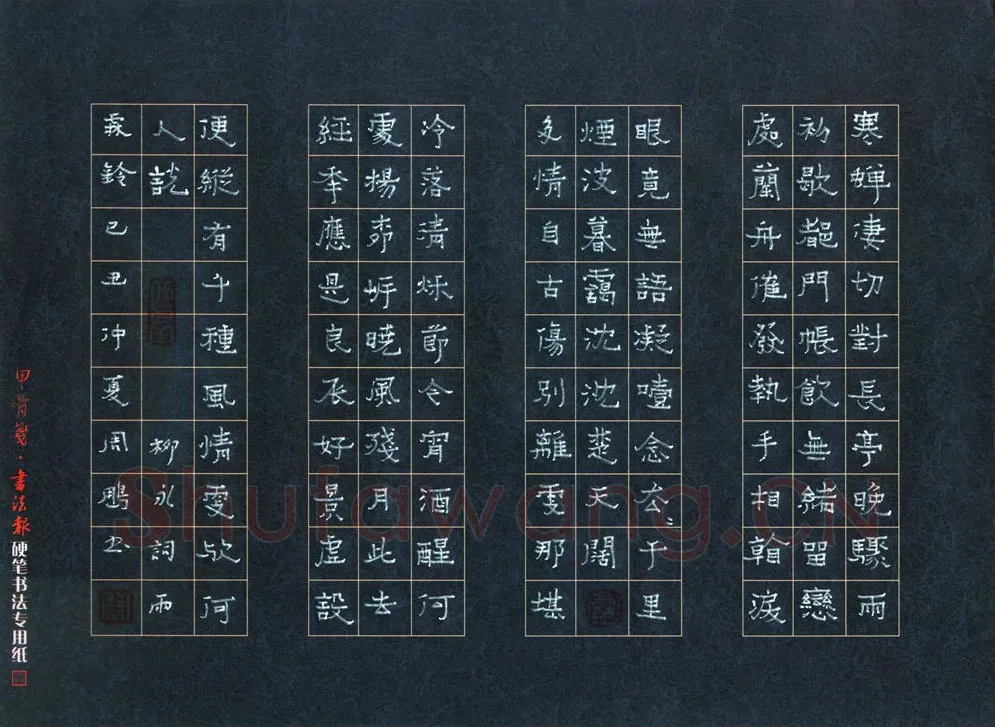 寒蟬凄切對長亭晚驟雨
初歇都門帳飲無緒留戀
處蘭舟催發執手相看淚
眼竟無語凝噎念去〻千里
煙波暮靄沈沈楚天闊
多情自古傷別離更那堪
冷落清秋節今宵酒醒何
處楊柳岸曉風殘月此去
經年應是良辰好景虛設
便縱有千種風情更與何
人說 柳永詞雨
霖鈴己丑仲夏周鵬書
甲骨箋·書法報硬笔书法专用纸
Shufawang.CN